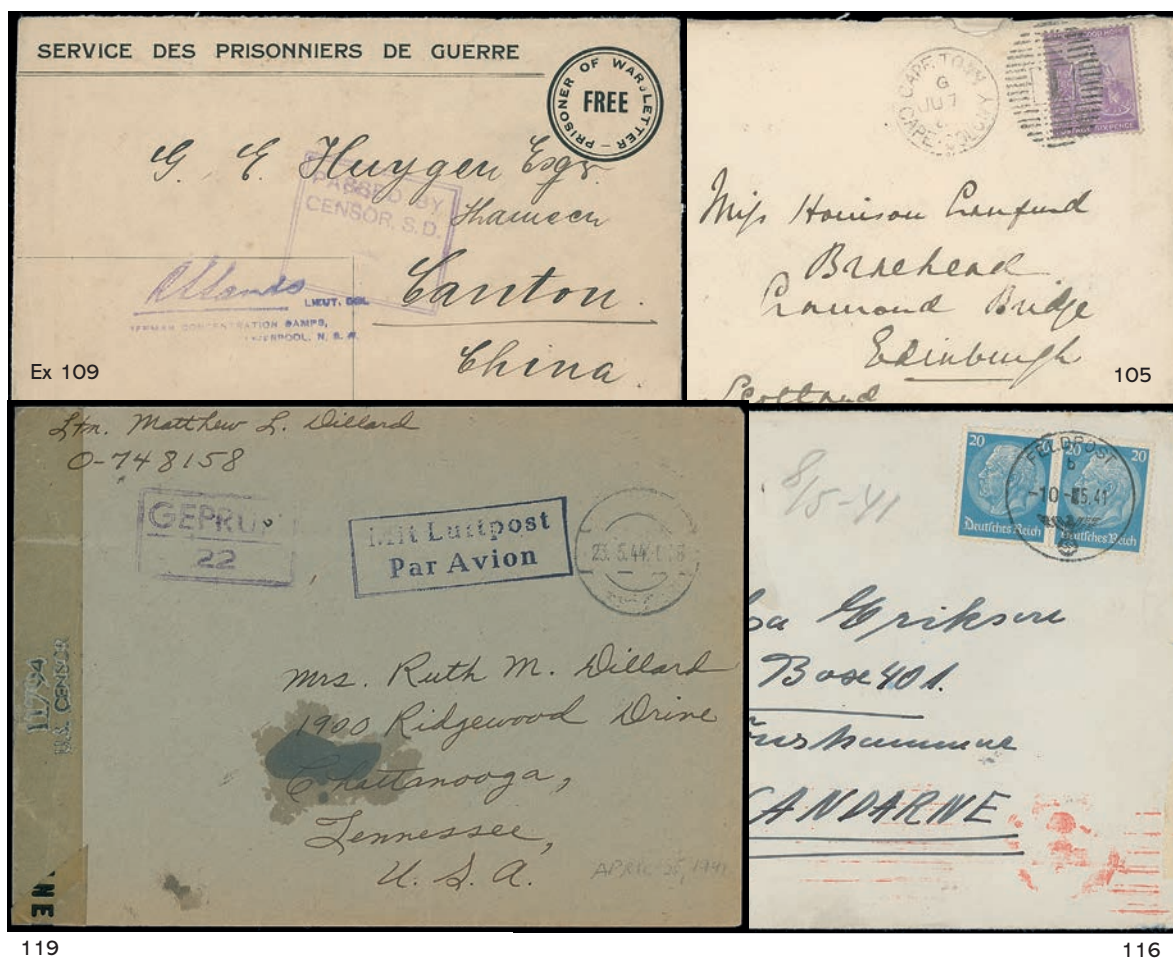 SERVICE DES PRISONNIERS DE GUERRE
PRISONER OF WAR LETTER
FREE
G. E. Huygen Esqr.
PASSED BY
CENSOR, S.D.
Shameen
LIEUT. COL.
GERMAN CONCENTRATION CAMPS,
LIVERPOOL, N. S. W.
Canton.
China.
Ex 109
CAPE TOWN
G
JU 7
CAPE COLONY
SIX PENCE
Miss Howison Craufurd
Braehead
Cramond Bridge
Edinburgh
Scotland
105
Ltn. Matthew L. Dillard
O-748158
GEPRÜF
22
Mit Luftpost
Par Avion
23.5.44
11794
U.S. CENSOR
Mrs. Ruth M. Dillard
1900 Ridgewood Drive
Chattanooga,
Tennessee,
U. S. A.
APRIL 25, 1944
NE
119
8/5-41
20 20 20
Deutsches Reich Deutsches Reich
FELDPOST
b
-10- 5.41
Erikson
Box 401.
ANDARNE
116